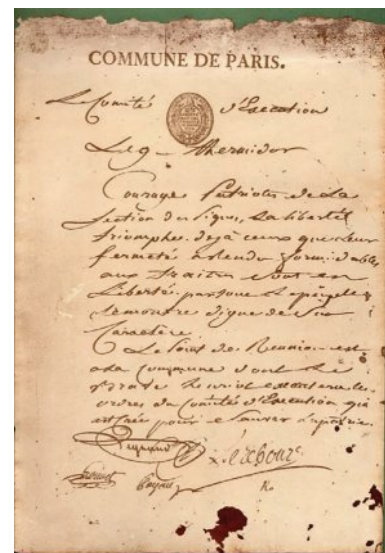 COMMUNE DE PARIS.
Le Comité d'Execution
Le 9 Thermidor
Courage Patriotes de la
Section des Piques, la liberté
triomphe. deja ceux que leur
fermeté a rendu formidables
aux traitres sont en
Liberté. partout le peuple
se montre digne de son
Caractère
Le Point de Reunion est
a la Commune dont le
brave henriot executera les
ordres du Comité d'Execution qui
est crée pour sauver la patrie.
Legrand Lerebours
Louvet Payan Ro